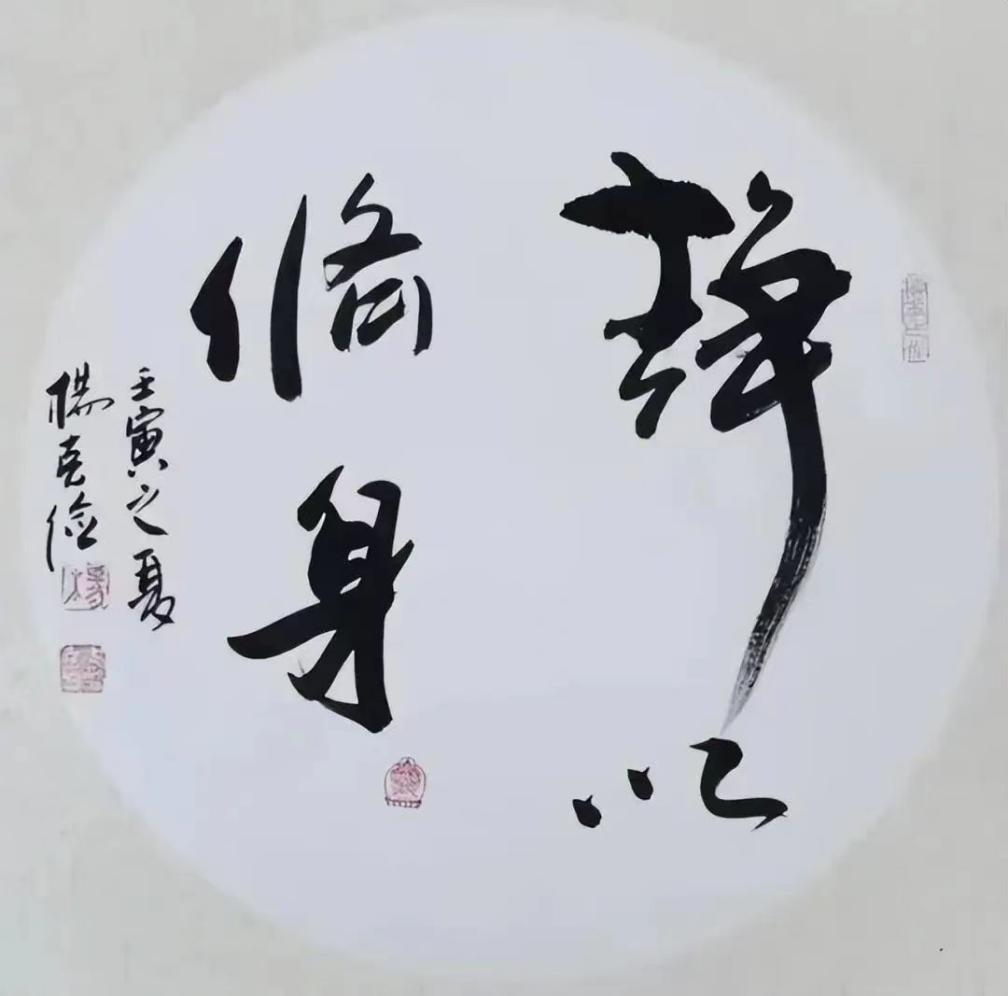 靜以
脩身
壬寅之夏
楊克俭